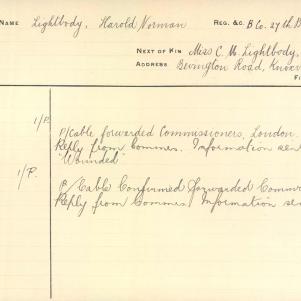 NAME Lightbody, Harold Norman REG. &C. B Co. 27th B
NEXT OF KIN Miss C. M. Lightbody,
ADDRESS Bevington Road, Knoxv
Fi
1/P. P/Cable forwarded Commissioners, London.
Reply from Commrs. Information sen
"Wounded"
1/P. P/Cable Confirmed forwarded Commr
Reply from Commrs Information se